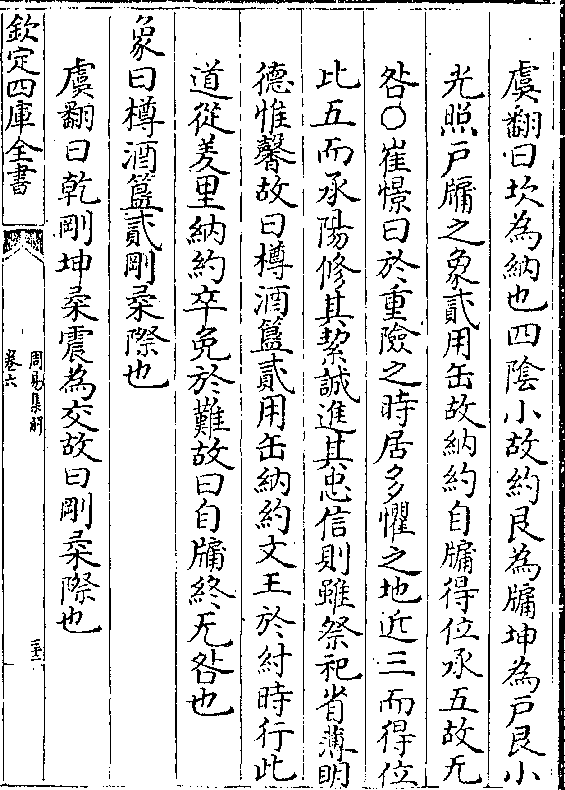 虞翻曰坎為納也四陰小故約艮為牖坤為戸艮小
光照戸牖之象貳用缶故納約自牖得位承五故无
咎○崔憬曰於重險之時居多懼之地近三而得位
比五而承陽修其絜誠進其忠信則雖祭祀省薄明
德惟馨故曰樽酒簋貳用缶納約文王於紂時行此
道從羑里納約卒免於難故曰自牖終无咎也
象曰樽酒簋貳剛柔際也
虞翻曰乾剛坤柔震為交故曰剛柔際也
欽定四庫全書
周易集解
卷六
三十二